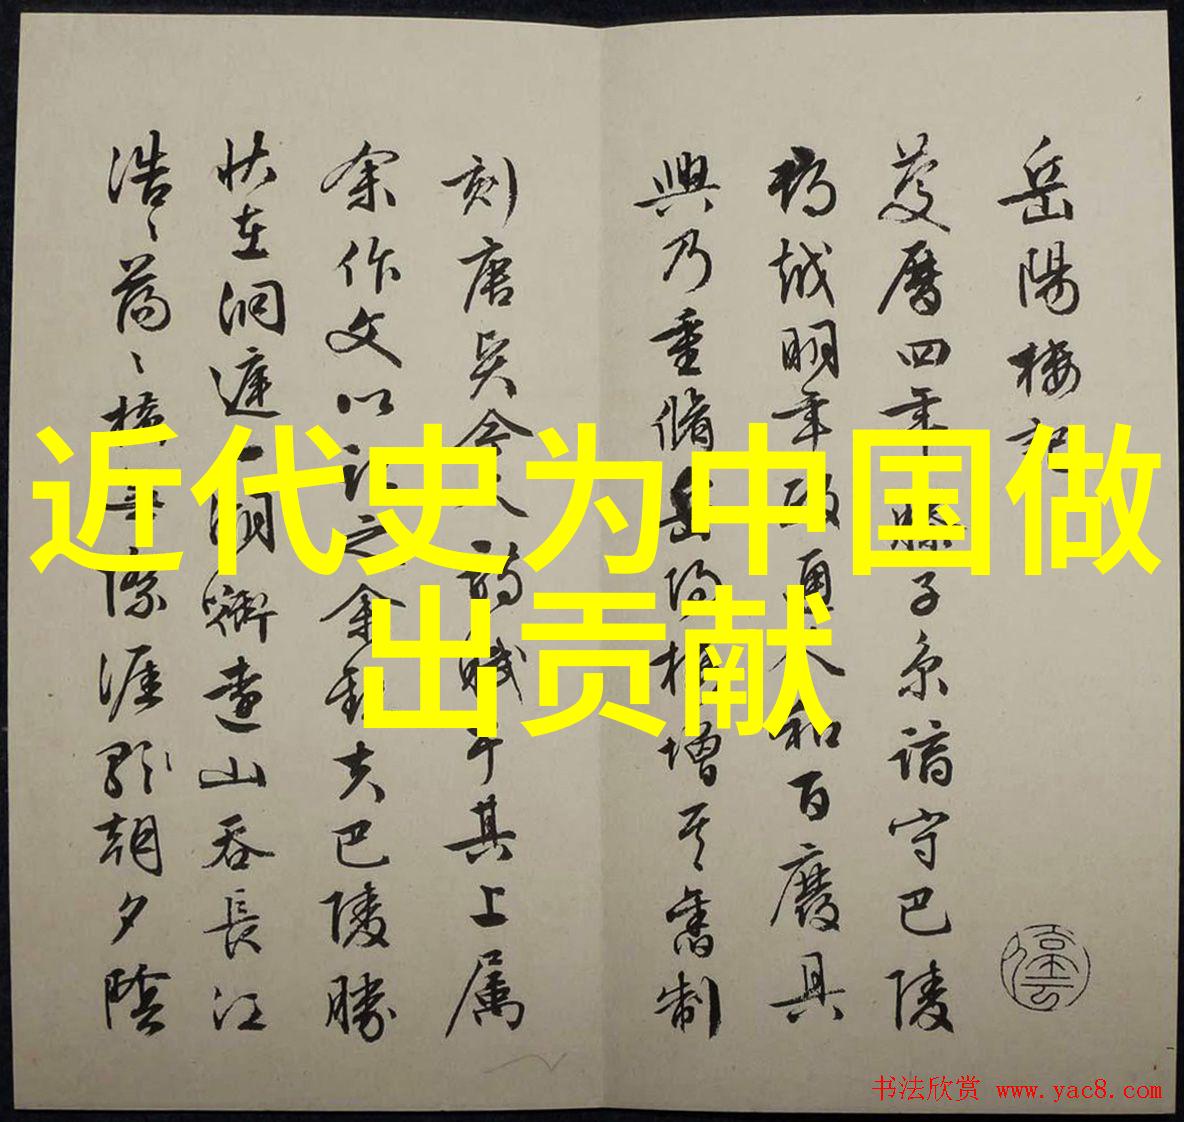 近代史为中国做
出贡献
岳陽樓記
慶曆四年滕子京謫守巴陵
郡越明年政通人和百廢具
興乃重脩岳陽樓增其舊制
刻唐賢今人詩賦于其上属
余作文以記之余觀夫巴陵勝
狀在洞庭一湖銜遠山吞長江
浩〻蕩〻橫無際涯朝夕陰
书法欣赏 www.yac8.com